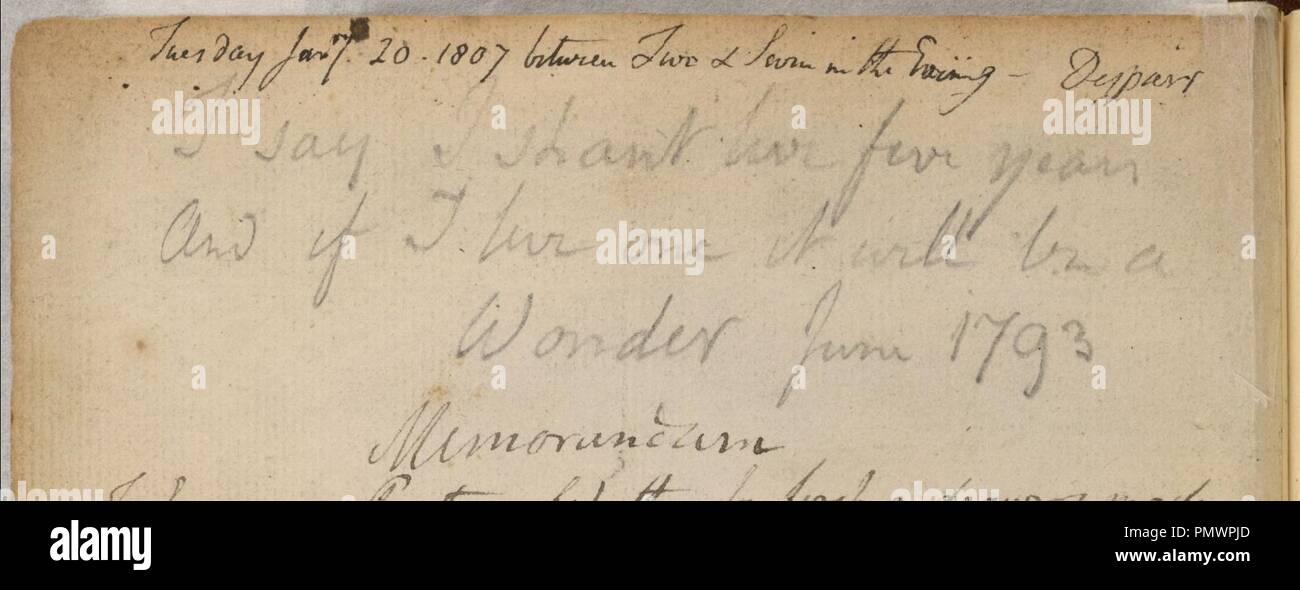 Tuesday Jany. 20. 1807 between Two & Seven in the Evening – Despair
I say I shant live five years
And if I live one it will be a
Wonder June 1793
Memorandum
alamy stock photo
alamy
Image ID: PMWPJD
www.alamy.com